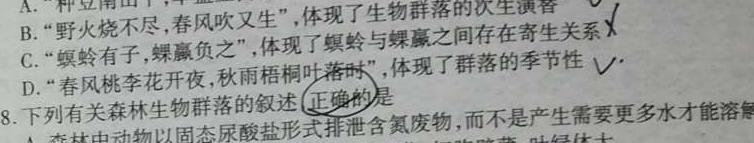 A.“种豆南山下,草盛豆
B.“野火烧不尽,春风吹又生”,体现了生物群落的次生演替
C.“螟蛉有子,蜾蠃负之”,体现了螟蛉与蜾蠃之间存在寄生关系
D.“春风桃李花开夜,秋雨梧桐叶落时”,体现了群落的季节性
8.下列有关森林生物群落的叙述,正确的是
A.森林中动物以固态尿酸盐形式排泄含氮废物,而不是产生需要更多水才能溶解
叶绿体大